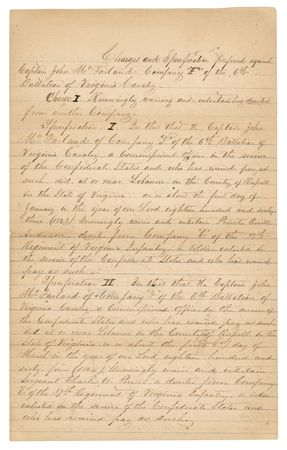 Charges and Specification prefered against
Captain John McFarland. Company "F" of the 6th
Battalion of Virginia Cavalry
Charge I. Knowingly receiving and entertaining deserters
from another Company.
Specification I. In this that the Captain John
McFarland of Company F of the 6th Battalion of
Virginia Cavalry, a commissioned officer in the service
of the Confederate States and who has received pay as
such, did at or near Lebanon in the County of Russell
in the State of Virginia on or about the first day of
January in the year of our Lord eighteen hundred and sixty
three (1863) knowingly receive and entertain
Anderson a deserter from Company "C" of the
Regiment of Virginia Infantry, a soldier enlisted in
the service of the Confederate States and who has received
pay as such.
Specification II. In this that the Captain John
McFarland of Company F of the 6th Battalion of
Virginia Cavalry a commissioned officer in the service of
the Confederate States and who has received pay as such
did at or near Lebanon in the County of Russell in the
State of Virginia on or about the first day of
March in the year of our Lord eighteen hundred and
sixty knowingly receive and entertain
Sergeant Charles W. a deserter from Company
of the Regiment of Virginia Infantry a soldier
enlisted in the service of the Confederate States and
who has received pay as such